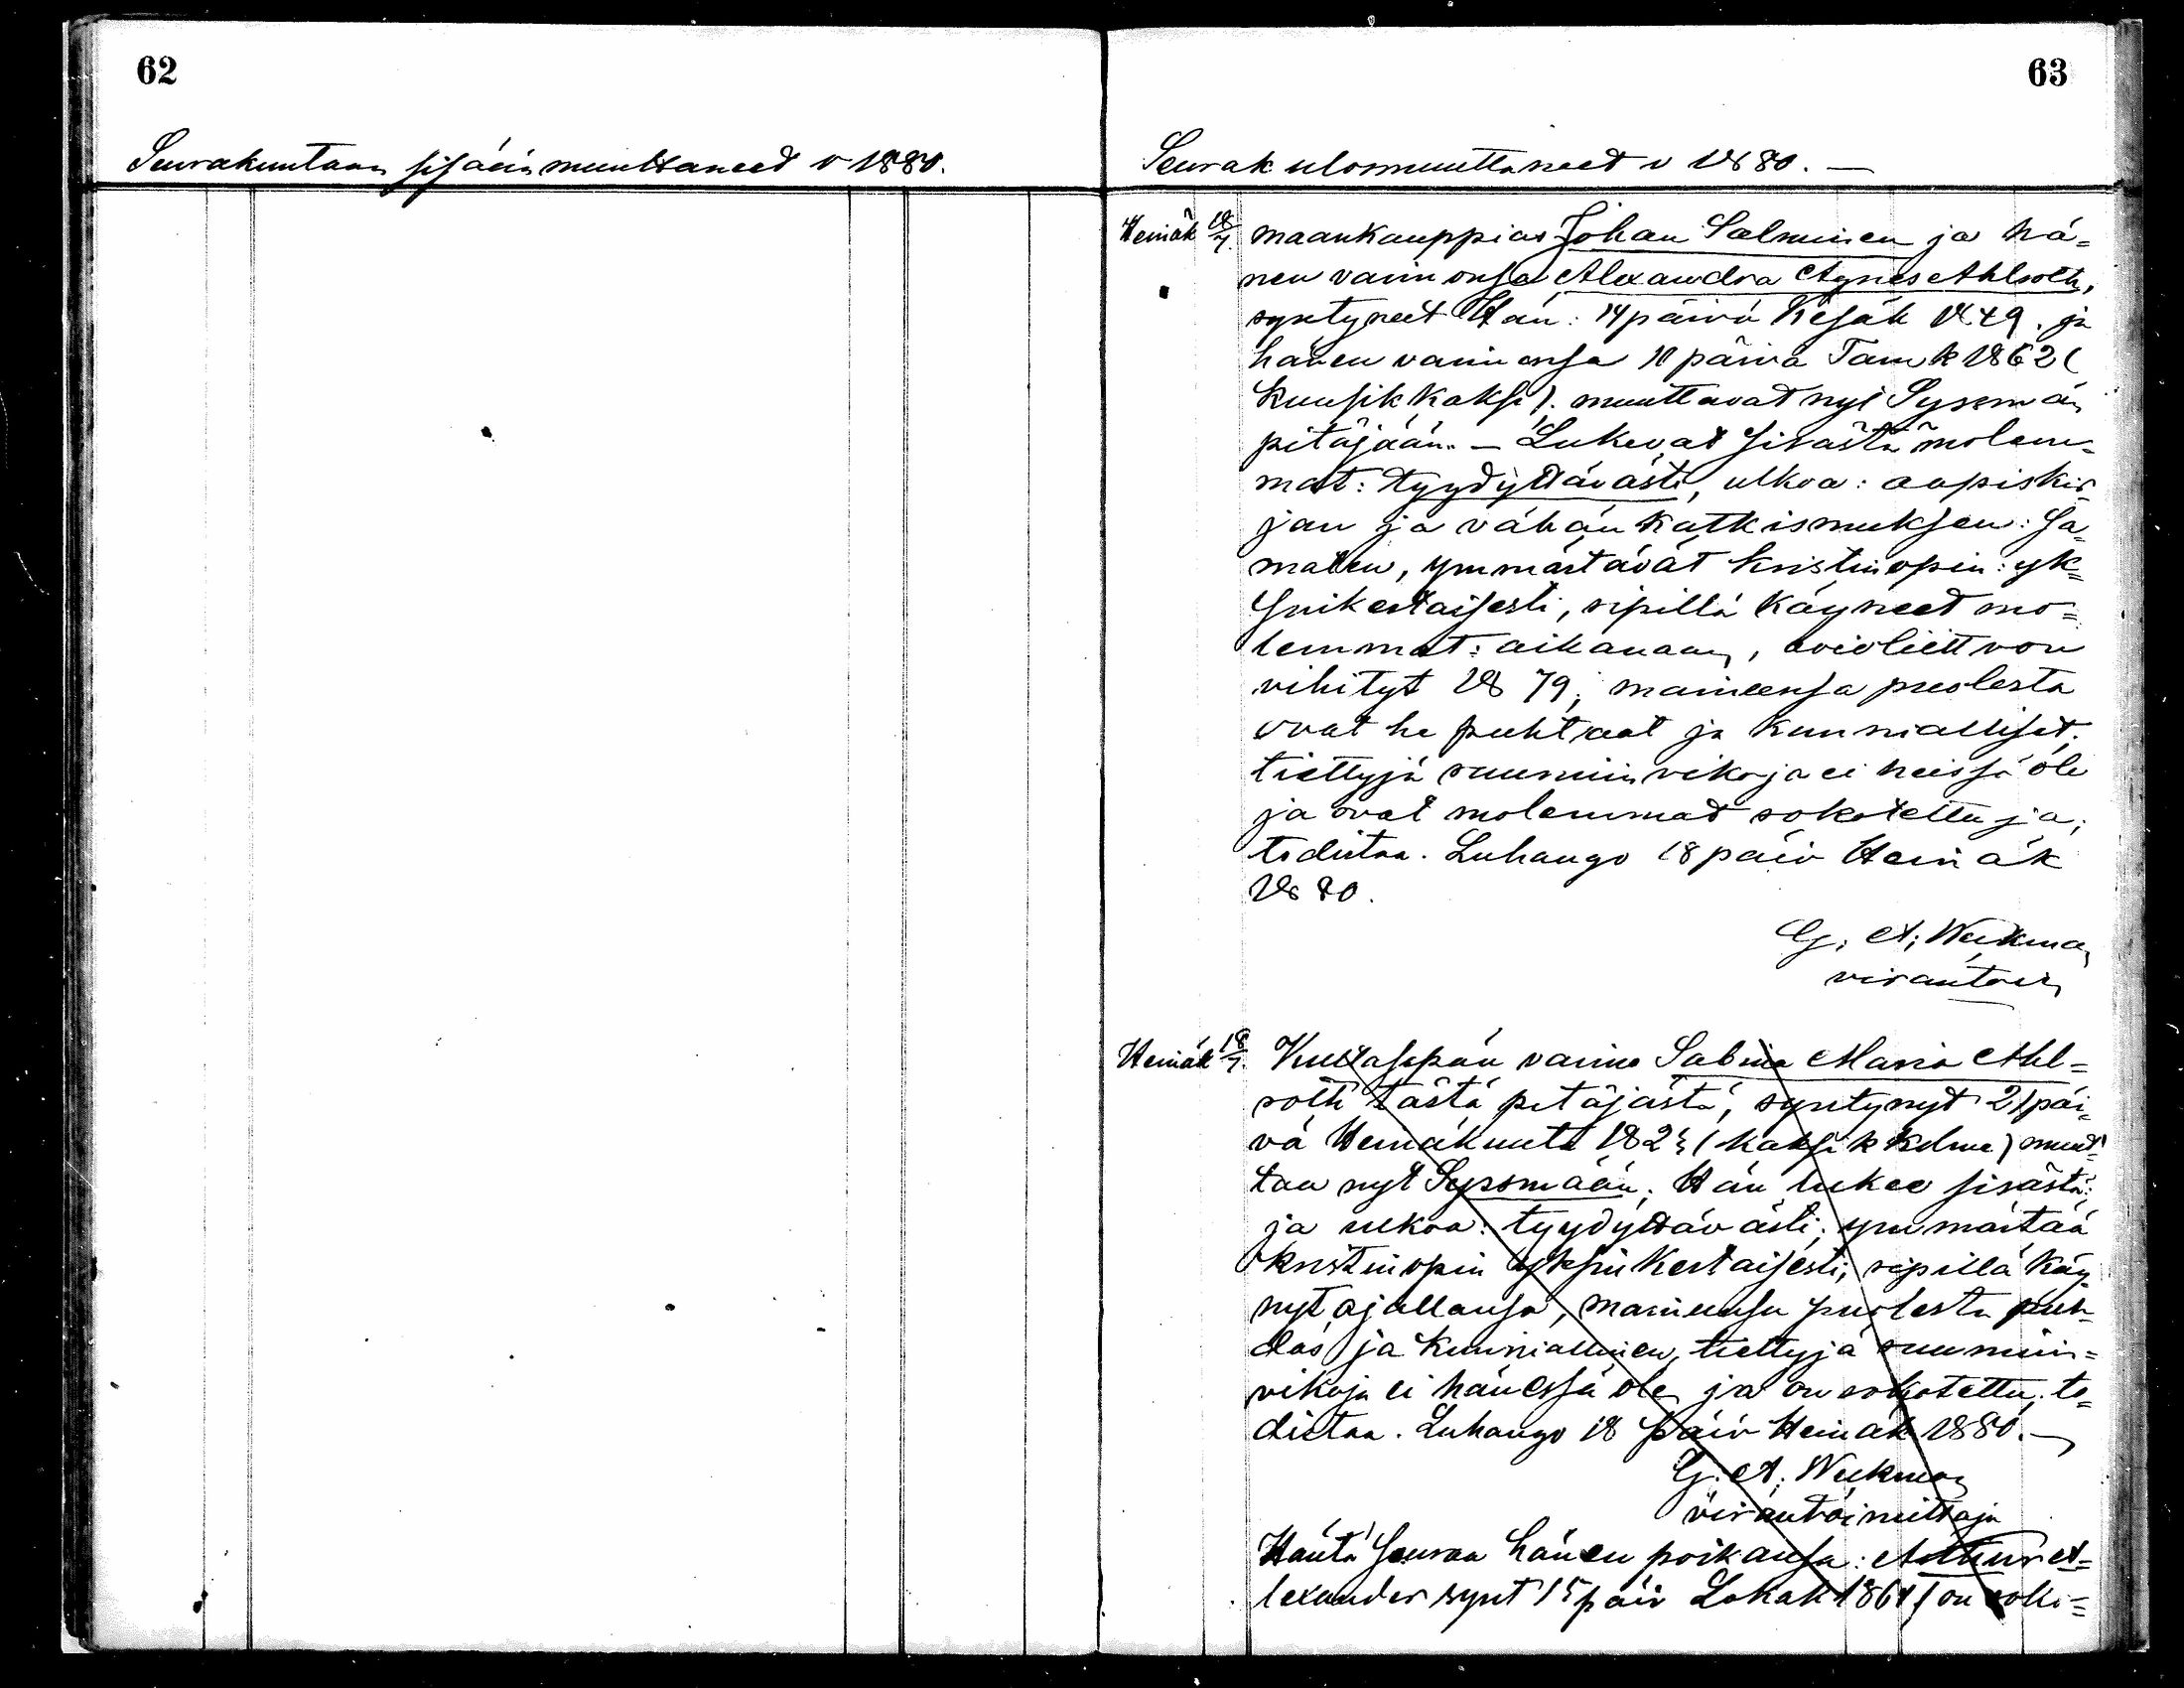 62
Seurakuntaan sisäänmuuttaneed v 1880.
63
Seurak ulosmuuttaneet v 1880. —
Heinäk 18/7. maankauppias Johan Salminen ja hä=
nen vaimonsa Alexandra Agnes Ahlroth,
syntyneet Hän: 14 päivä Kesäk 1849. ja
hänen vaimonsa 10 päivä Tamk 1862 (
kuusikkaksi). muuttavat nyt Sysmän
pitäjään. — Lukevat sisästä molem=
mat: tyydyttävästi, ulkoa: aapiskir=
jan ja vähän katkismuksen: sa=
maten, ymmärtävät kristinopin: yk=
sinkertaisesti, ripillä käyneet mo=
lemmat: aikanaan, avioliittoon
vihityt 1879; maineensa puolesta
ovat he puhtaat ja kunnialliset;
tiettyjä ruumiin vikoja ei heissä ole
ja ovat molemmat rokotettuja;
todistaa. Luhango 18 päiv Heinäk
1880.
G. A. Weckman
virantoim
Heinäk 18/7. Kultasepän vaimo Sabina Maria Ahl=
roth tästä pitäjästä, syntynyt 21 päi=
vä Heinäkuuta 1823 (kaksikkolme) muut=
taa nyt Sysmään. Hän lukee sisästä:
ja ulkoa: tyydyttävästi; ymmärtää
kristinopin yksinkertaisesti; ripillä käy=
nyt ajallansa, maineensa puolesta puh=
das ja kunniallinen, tiettyjä ruumiin=
vikoja ei hänessä ole ja on rokotettu; to=
distaa. Luhango 18 päiv Heinäk 1880. —
G. A. Weckman
virantoimittaja
Häntä seuraa hänen poikansa: Arthur A=
lexander synt 15 päiv Lokak 1861 / on roko=